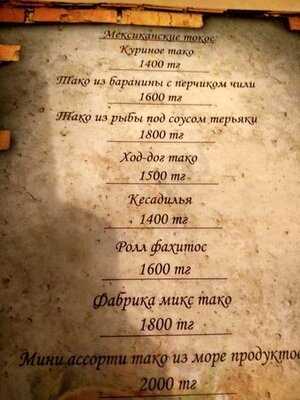 Мексиканские токос:
Куриное тако
1400 тг
Тако из баранины с перчиком чили
1600 тг
Тако из рыбы под соусом терьяки
1800 тг
Ход-дог тако
1500 тг
Кесадилья
1400 тг
Ролл фахитос
1600 тг
Фабрика микс тако
1800 тг
Мини ассорти тако из море продуктов
2000 тг